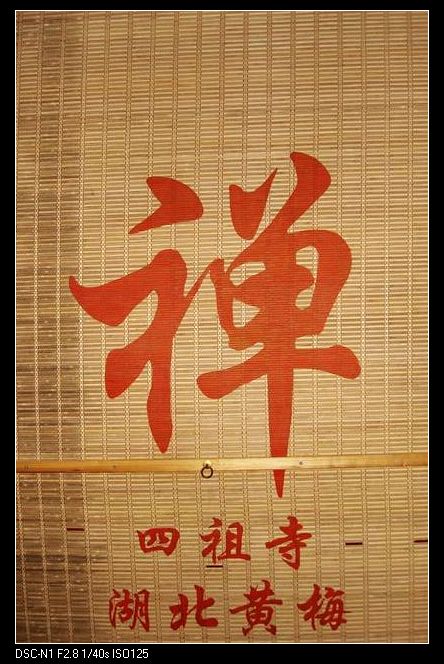 禅
四祖寺
湖北黄梅
DSC-N1 F2.8 1/40s ISO125